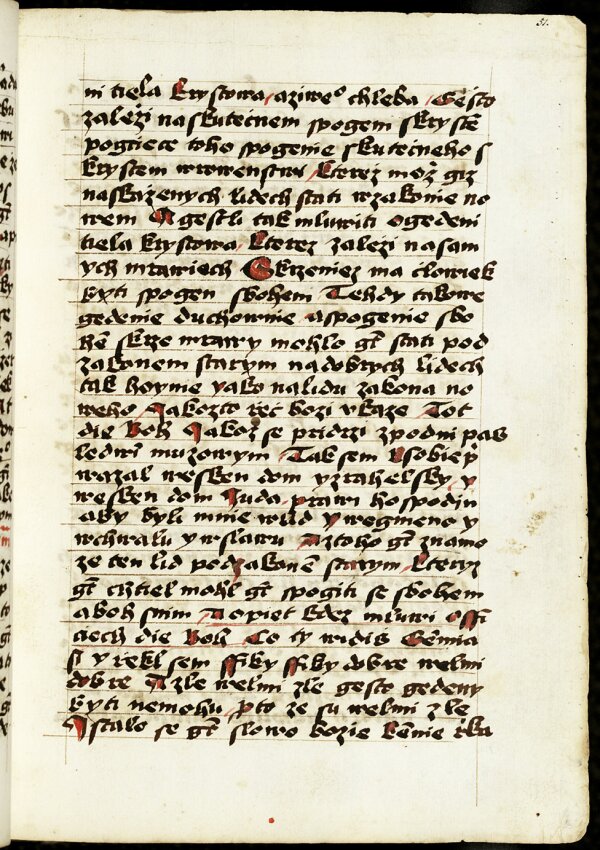 51.
ni tiela Krystowa, aziweᵒ chleba, Gesto
zaleži naskutecnem spogem sKrystē
pogitece toho spogenie skutecneho s
Krystem
naskazenych lidech stati wzakonie no
wem A gestli tak mluwiti ogedeni
tiela Krystowa, Kterez zaleži nasam
ych mrawiech Skrzeniez ma clowiek
byti spogen sbohem Tehdy takowe
gedenie duchownie aspogenie sbo
hē skrze mrawy mohlo gt̄ stati pod
zakonem starym nadobrych lidech
tak hoynie yako nalidu zakona no
weho, Jakozto rec bozi vkaze Tot
die Boh Jakoz se pridrzi zpodni pas
ledwi muzowym, Tak sem
wazal wesken dom yzrahelsky, y
wesken dom Juda, prawi hospodin
aby byli mnie w lid y wegmeno y
wchwalu y wslawu Aztoho gt̄ znamo
ze ten lid podzakonē starym, Kteryz
gt̄ chtiel mohl gt̄ spogiti se sbohem
aboh snim, Aopiet kdez mluwi
die Boh Co ty widis Gēmia
si y rekl sem ffiky ffiky dobre welmi
dobre A zle welmi zle gesto gedeny
byti nemohu, pto ze su welmi zle
Astalo se gt̄ slowo bozie kēmie rka